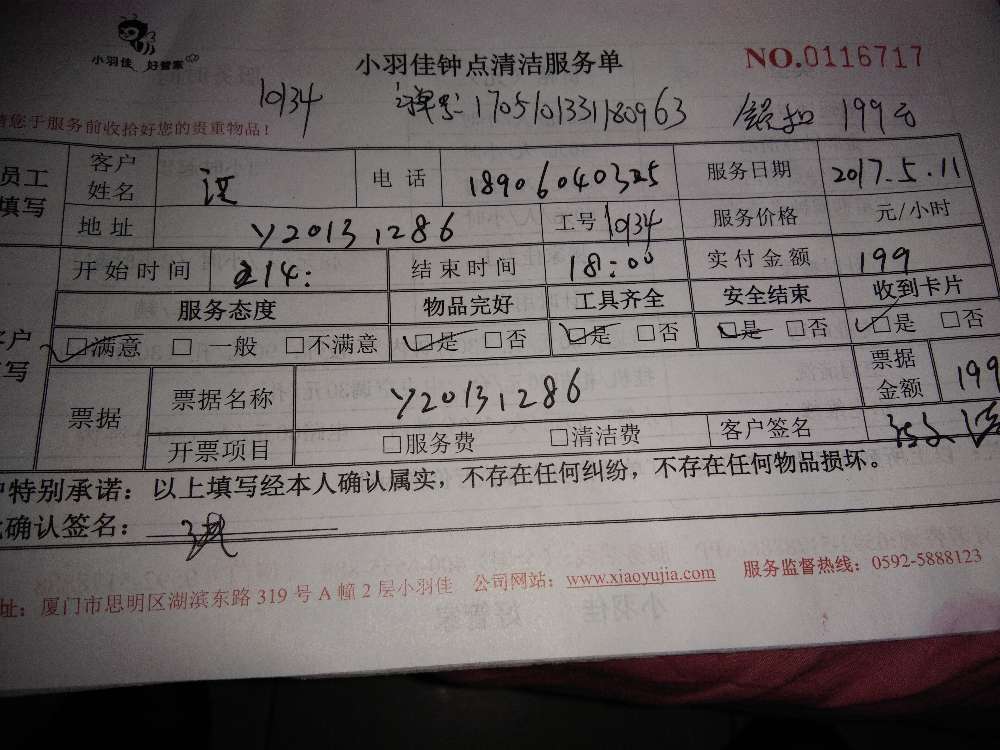 小羽佳 好管家
小羽佳钟点清洁服务单 NO.0116717
10134 170510133180963 199元
请您于服务前收拾好您的贵重物品!
员工填写 客户姓名 电话 18906040325 服务日期 2017.5.11
地址 Y20131286 工号 10134 服务价格 元/小时
开始时间 14: 结束时间 18:00 实付金额 199
服务态度 物品完好 工具齐全 安全结束 收到卡片
客户填写 □满意 □一般 □不满意 □是 □否 □是 □否 □是 □否 □是 □否
票据 票据名称 Y20131286 票据金额 199
开票项目 □服务费 □清洁费 客户签名
户特别承诺:以上填写经本人确认属实,不存在任何纠纷,不存在任何物品损坏。
确认签名:
址:厦门市思明区湖滨东路 319 号 A 幢 2 层小羽佳 公司网站:www.xiaoyujia.com 服务监督热线:0592-5888123